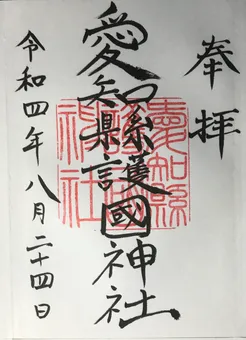 奉拝
愛知縣護國神社
愛知縣
神社
令和四年八月二十四日